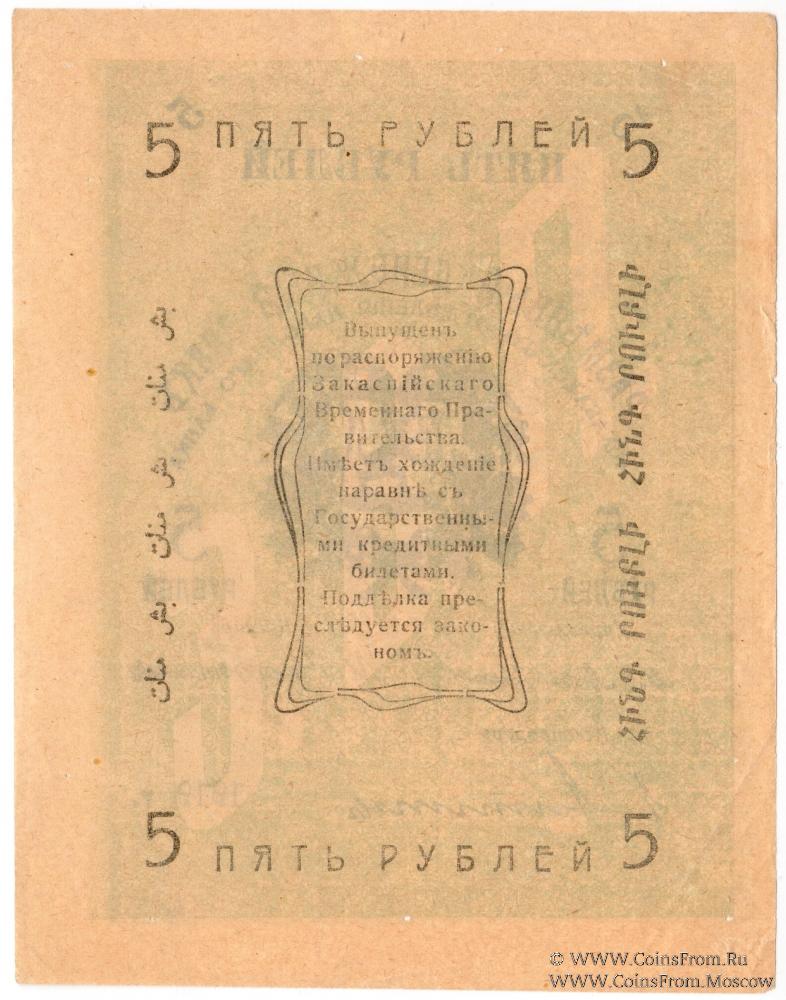 5 ПЯТЬ РУБЛЕЙ 5
بش منات بش منات بش منات
Выпущенъ
по распоряженію
Закаспійскаго
Временнаго Пра-
вительства.
Имѣетъ хожденіе
наравнѣ съ
Государственны-
ми кредитными
билетами.
Поддѣлка пре-
слѣдуется зако-
номъ.
ՀԻՆԳ ՐՈՒԲԼԻ ՀԻՆԳ ՐՈՒԲԼԻ
5 ПЯТЬ РУБЛЕЙ 5
© WWW.CoinsFrom.Ru
WWW.CoinsFrom.Moscow